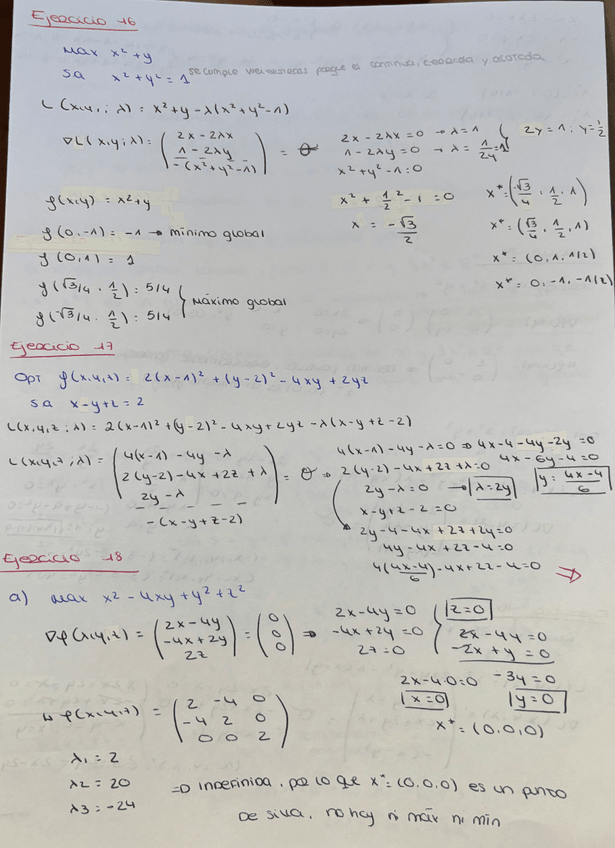 Ejercicio 16
Max x² + y
sa x² + y² = 1 se cumple Weierstrass porque es continua, cerrada y acotada
L(x,y,; λ) = x² + y - λ(x² + y² - 1)
∇L(x,y;λ) = (2x - 2λx
1 - 2λy
-(x² + y² - 1)) = θ
2x - 2λx = 0 → λ = 1
1 - 2λy = 0 → λ = 1/2y = 1
x² + y² - 1 = 0
2y = 1; y = 1/2
x² + 1/2² - 1 = 0
x = -√3/2
x* = (-√3/4, 1/2, 1)
x* = (√3/4, 1/2, 1)
x* = (0, 1, 1/2)
x* = 0, -1, -1/2)
f(x,y) = x² + y
f(0,-1) = -1 → mínimo global
f(0,1) = 1
f(√3/4, 1/2) = 5/4
f(-√3/4, 1/2) = 5/4 } Máximo global
Ejercicio 17
Opt f(x,y,z) = 2(x-1)² + (y-2)² - 4xy + 2yz
sa x - y + z = 2
L(x,y,z;λ) = 2(x-1)² + (y-2)² - 4xy + 2yz - λ(x - y + z - 2)
L(x,y,z;λ) = (4(x-1) - 4y - λ
2(y-2) - 4x + 2z + λ
2y - λ
-(x - y + z - 2)) = θ ⇒
4(x-1) - 4y - λ = 0 ⇒ 4x - 4 - 4y - 2y = 0
4x - 6y - 4 = 0
2(y-2) - 4x + 2z + λ = 0
y = 4x-4/6
2y - λ = 0 → λ = 2y
x - y + z - 2 = 0
2y - 4 - 4x + 2z + 2y = 0
4y - 4x + 2z - 4 = 0
4(4x-4/6) - 4x + 2z - 4 = 0 ⇒
Ejercicio 18
a) Max x² - 4xy + y² + z²
∇f(x,y,z) = (2x - 4y
-4x + 2y
2z) = (0
0
0) ⇒
2x - 4y = 0
-4x + 2y = 0
2z = 0
z = 0
2x - 4y = 0
-2x + y = 0
-3y = 0
2x - 4·0 = 0
x = 0
y = 0
x* = (0,0,0)
H f(x,y,z) = (2 -4 0
-4 2 0
0 0 2)
λ1 = 2
λ2 = 20
λ3 = -24
⇒ Indefinida, por lo que x* = (0,0,0) es un punto
de silla, no hay ni máx ni min